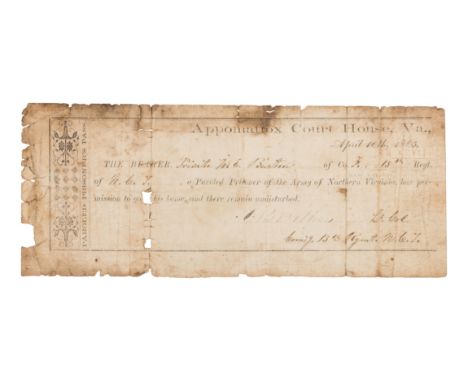 PAROLED PRISONER'S PASS.
Appomattox Court House, Va.,
April 10th, 1865.
THE BEARER, Private of Co. F. 15th Regt.
of N.C.T., a Paroled Prisoner of the Army of Northern Virginia, has per-
mission to go to his home, and there remain undisturbed.
Lt Col
Comdg 15th Regmt. N.C.T.